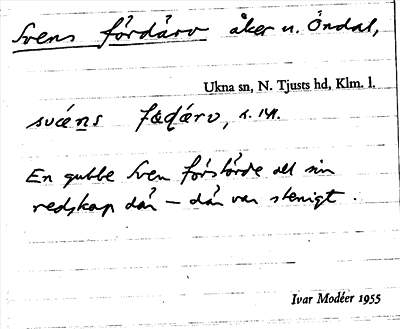 Svens fördärv åker u. Öndal,
Ukna sn, N. Tjusts hd, Klm. l.
En gubbe Sven förstörde all sin
redskap där – där var stenigt.
Ivar Modéer 1955